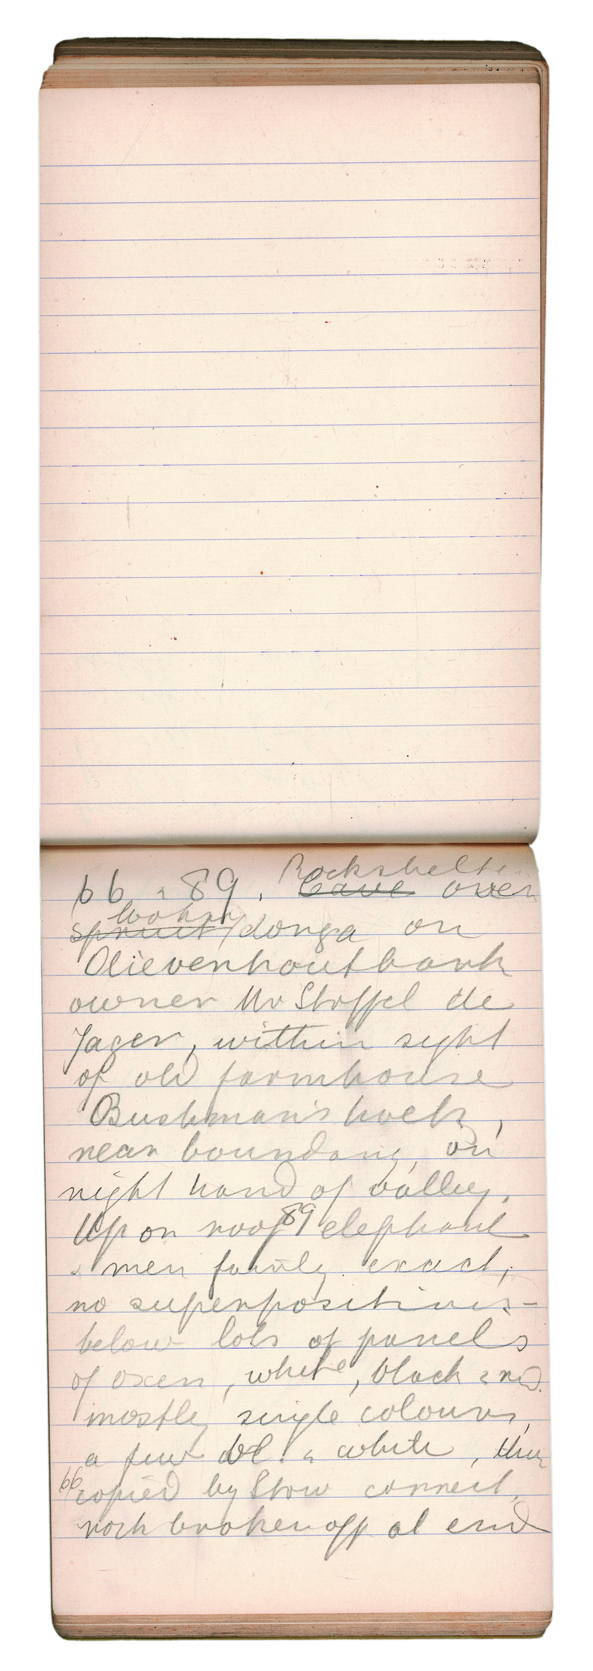 Rockshelter
66 & 89. Cave over
spruit / donga on
Olievenhoutbank
owner Mr Stoffel de
Jager, within sight
of old farmhouse
Bushman's hoek,
near boundary, on
right hand of valley.
Up on roof 89 elephant
& men fairly exact,
no superpositions -
below lots of panels
of oxen, white, black & red
mostly single colours,
a few bl. & white, this
66
copied by Stow correct,
rock broken off at end